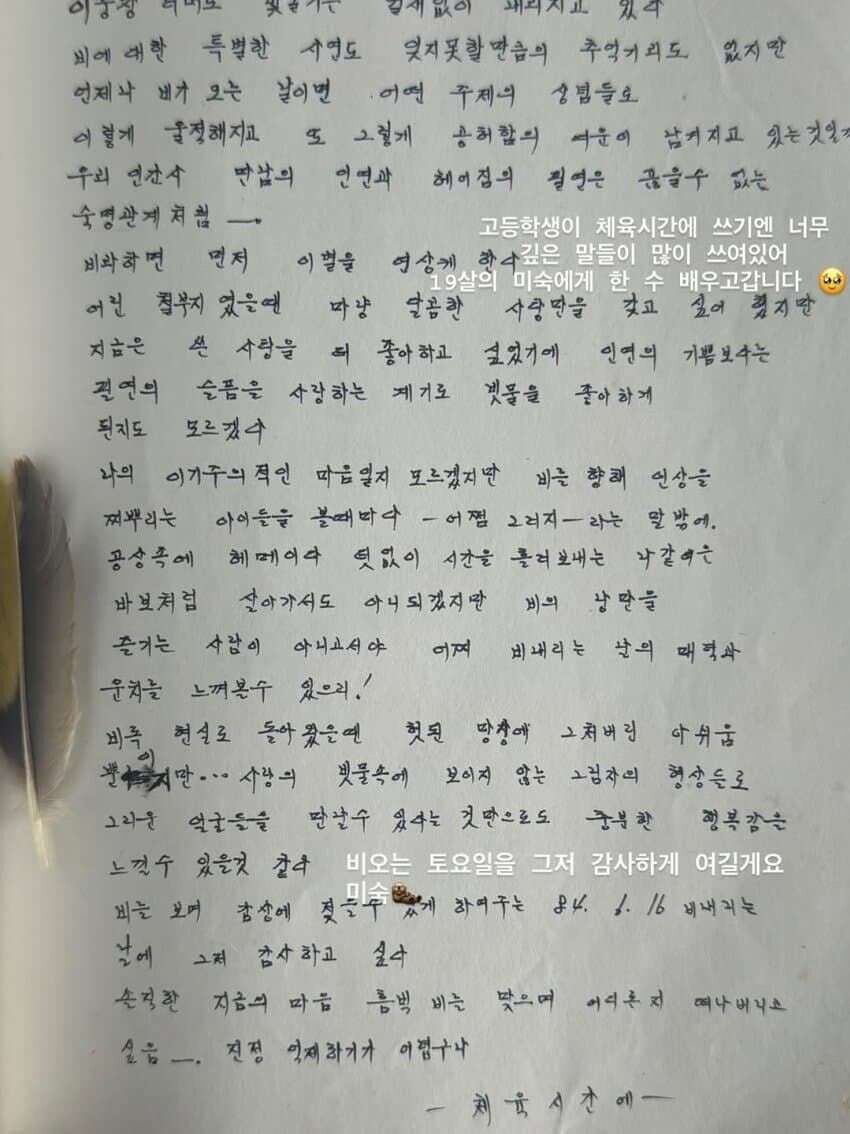 빗줄기는 내려지고 있다
비에 대한 특별한 사연도 잊지못할만큼의 추억거리도 없지만
언제나 비가 오는 날이면 어떤 주제의 상념들로
이렇게 울적해지고 또 그렇게 공허함의 여운이 남겨지고 있는것일까
우리 인간사 만남의 인연과 헤어짐의 필연은 끊을수 없는
숙명관계처럼 —.
고등학생이 체육시간에 쓰기엔 너무
깊은 말들이 많이 쓰여있어
19살의 미숙에게 한 수 배우고갑니다 🥹
비와하면 먼저 이별을 연상케 한다
어린 철부지 였을땐 마냥 달콤한 사랑만을 갖고 싶어 했지만
지금은 쓴 사랑을 더 좋아하고 싶었기에 인연의 기쁨보다는
필연의 슬픔을 사랑하는 계기로 빗물을 좋아하게
된지도 모르겠다
나의 이기주의적인 마음일지 모르겠지만 비를 향해 인상을
찌뿌리는 아이들을 볼때마다 — 어쩜 그러지 — 라는 말밖에.
공상속에 헤메이다 덧없이 시간을 흘려보내는 나같은
바보처럼 살아가서도 아니되겠지만 비의 낭만을
즐기는 사람이 아니고서야 어찌 비내리는 날의 매력과
운치를 느껴볼수 있으리!
비록 현실로 돌아왔을땐 헛된 망상에 그쳐버린 아쉬움
뿐이지만... 사랑의 빗물속에 보이지 않는 그림자의 형상들로
그리운 얼굴들을 만날수 있다는 것만으로도 충분한 행복감을
느낄수 있을것 같다
비오는 토요일을 그저 감사하게 여길게요
미숙
비를 보며 감상에 젖을수 있게 하여주는 84. 6. 16 비내리는
날에 그저 감사하고 싶다
솔직한 지금의 마음 흠뻑 비를 맞으며 어디론지 떠나버리고
싶음 —. 진정 억제하기가 어렵구나
— 체육시간에 —